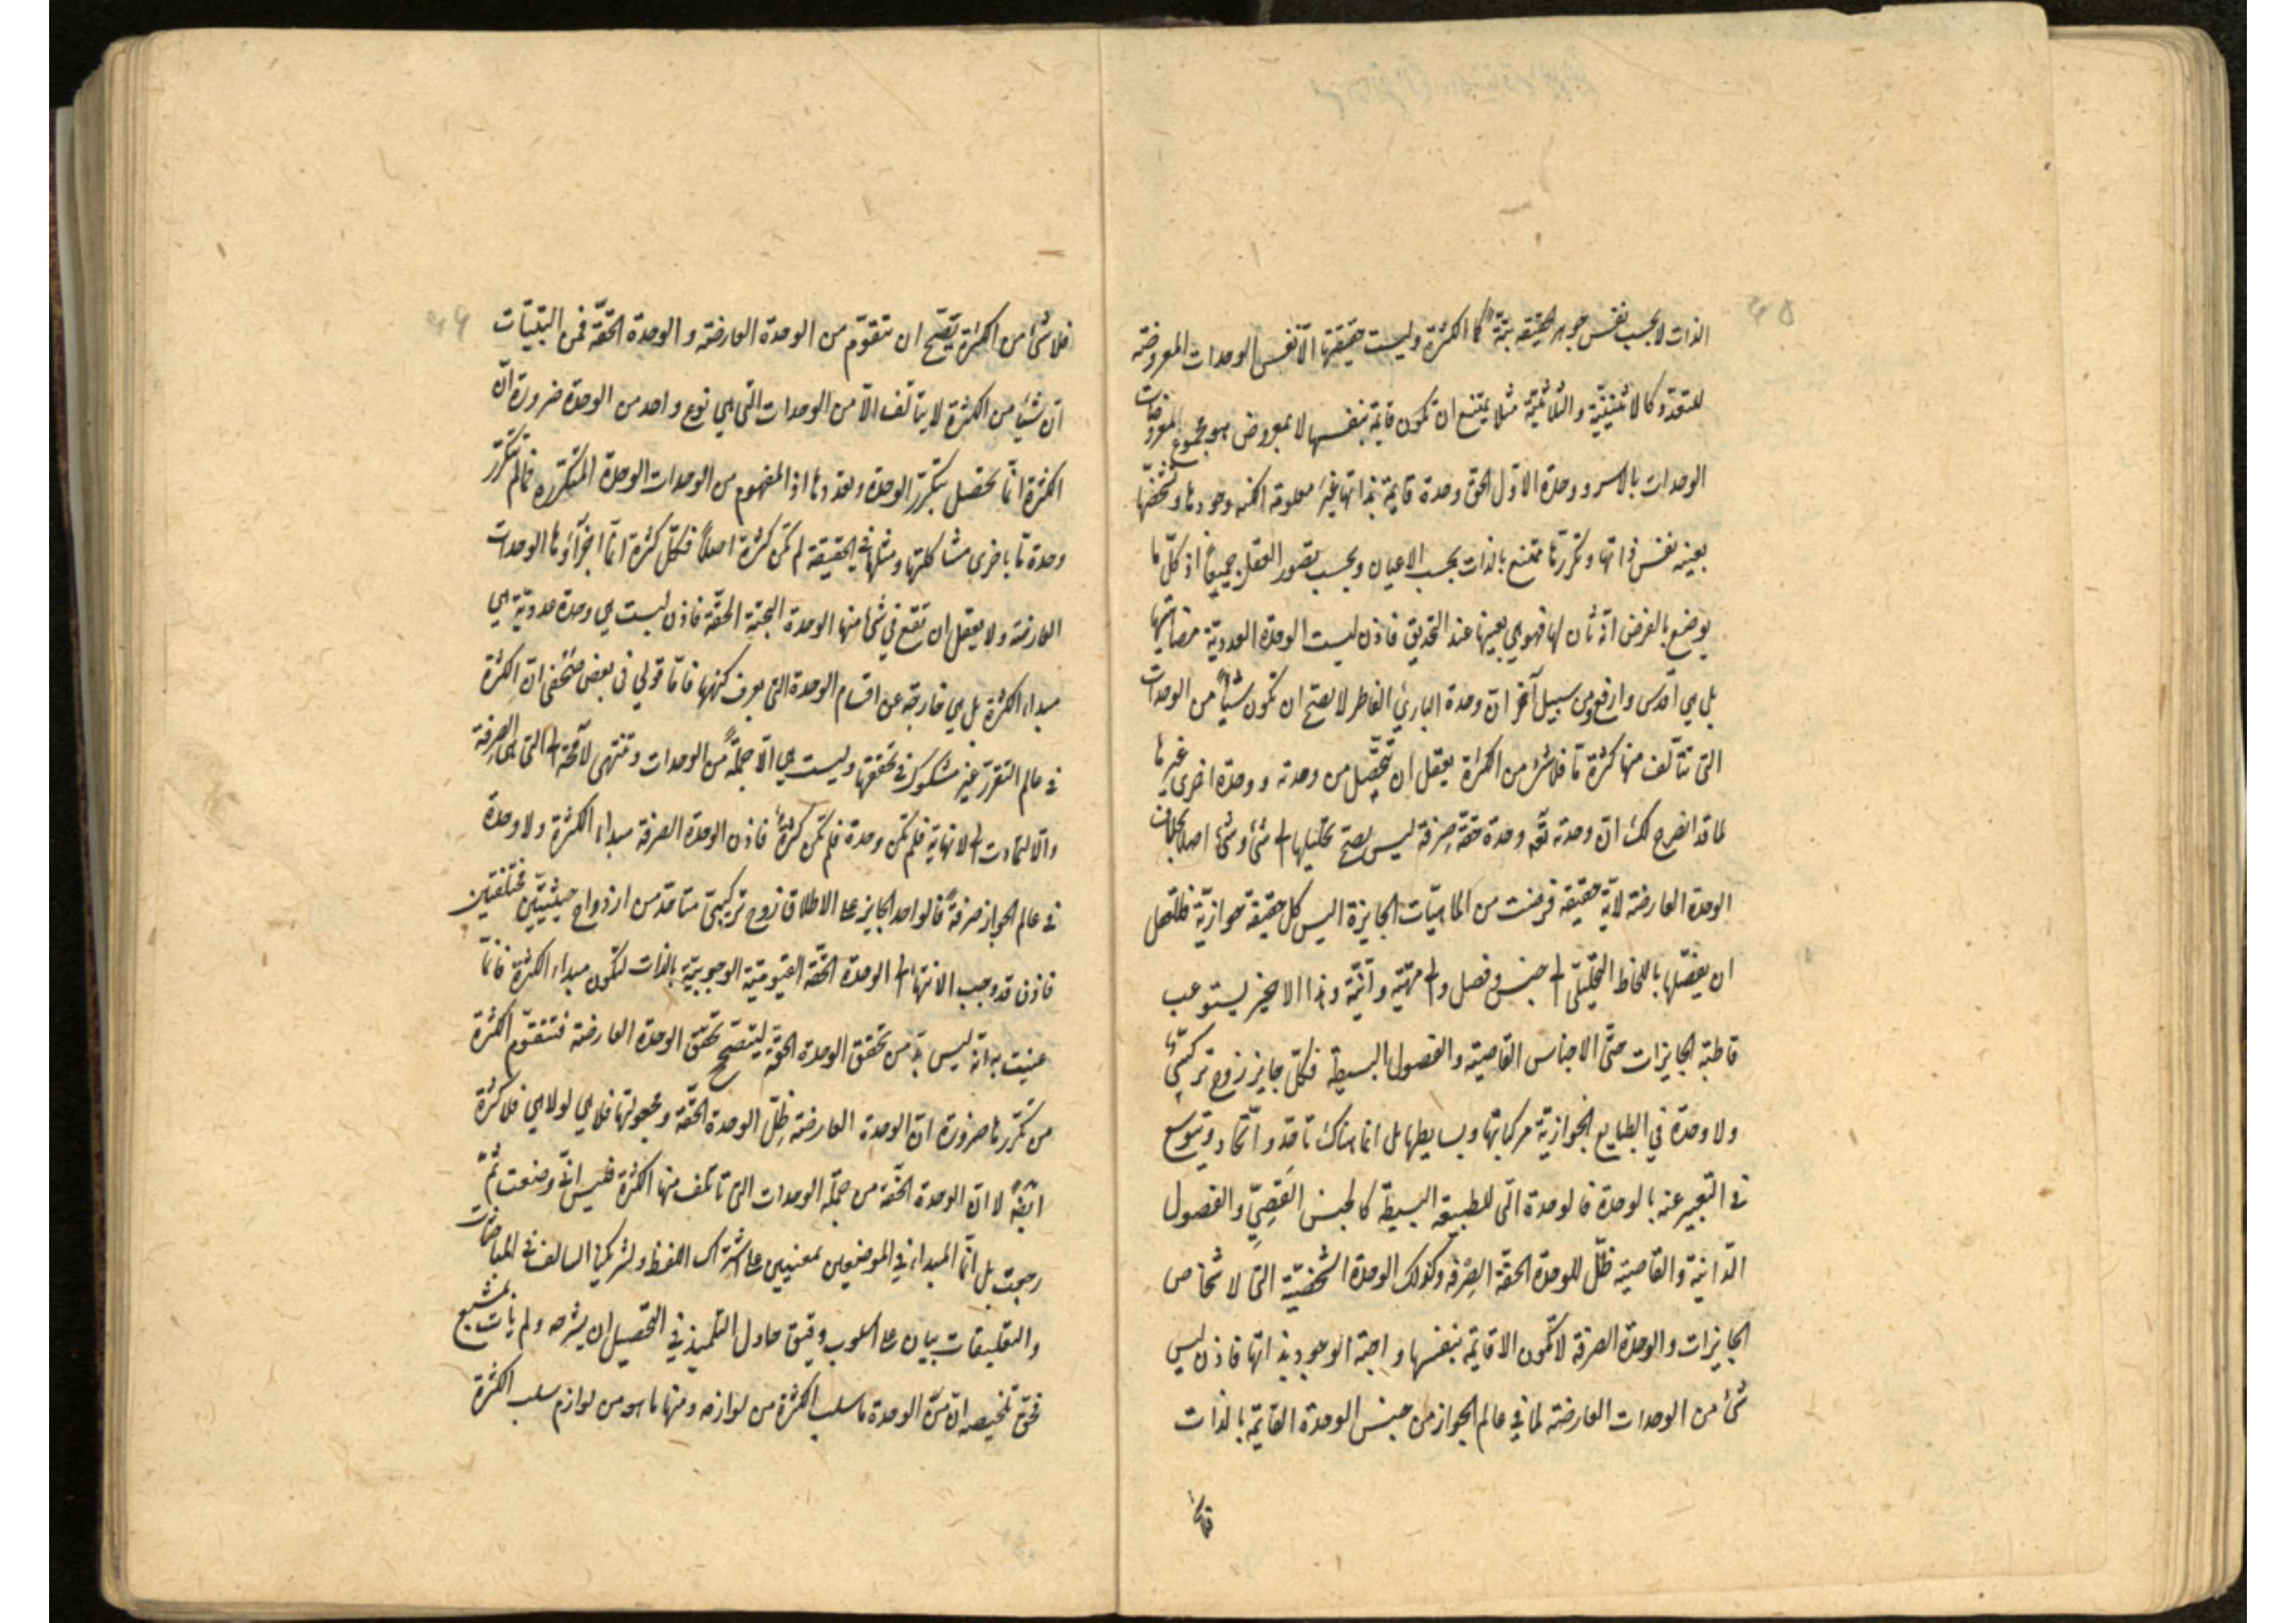 الذات لا بحسب نفس جوهر الحقيقة بتّةً كما الكثرة وليست حقيقتها الّا نفس الوحدات المعروضة
للتعدّد كالاثنينيّة والثلاثيّة مثلا يمتنع ان تكون قايمة بنفسها لا بمعروض هو مجموع المعروضات
الوحدات بالاسر ووحدة الاوّل الحق وحدة قايمة بذاتها غير معلومة الكنه وجودها وتشخّصها
بعينه نفس ذاتها وتكررّها ممتنع بالذات بحسب الاعيان وبحسب تصور العقل جميعاً اذ كلّ ما
يوضع بالفرض انّه ثان لها فهو هي بعينها عند التحديق فاذن ليست الوحدة العدديّة مضاهيتها
بل هي اقدس وارفع ومن سبيل آخر انّ وحدة البارئ الفاطر لا يصحّ ان تكون شيئاً من الوحدات
التي تتألّف منها كثرة مّا فلا شئ من الكثرة يعقل ان تتحصّل من وحدته ووحدة اخرى غيرها
لما قد انصرح لك انّ وحدته تعه وحدة حقّة صِرفة ليس يصحّ تحليلها الى شئ وشئ اصلا بخلاف
الوحدة العارضة لايّة حقيقة فرضت من الماهيّات الجايزة اليس كل حقيقة جوازيّة فللعقل
ان يفصّلها باللحاظ التحليليّ الى جنس وفصل والى مهيّة وانيّة وهذا الاخير يستوعب
قاطبة الجايزات حتّى الاجناس القاصية والفصول البسيطة فكلّ جايز زوج تركيبيّ
ولا وحدة في الطبايع الجوازيّة مركباتها وبسايطها بل انما هناك تاحّد واتّحاد ويتوسع
في التعبير عنه بالوحدة فالوحدة الّتي للطبيعة البسيطة كالجنس القَصِيّ والفصول
الدّانية والقاصية ظلّ للوحدة الحقّة الصِرفة وكذلك الوحدة الشخصيّة التي لاشخاص
الجايزات والوحدة الصرفة لا تكون الا قايمة بنفسها واجبة الوجود بذاتها فاذن ليس
شئ من الوحدات العارضة لما في عالم الجواز من جنس الوحدة القايمة بالذات
فلا شئ من الكثرة يصحّ ان تتقوّم من الوحدة العارضة والوحدة الحقّة فمن البيّنات
انّ شيئا من الكثرة لا يتألّف الّا من الوحدات التي هي نوع واحد من الوحدة ضرورة انّ
الكثرة انّما تحصل بتكرّر الوحدة وتعددها اذ المفهوم من الوحدات الوحدة المتكررة فما لم تتكرّر
وحدة مّا باخرى مشاكلتها ومثلها في الحقيقة لم تكن كثرة اصلاً فكلّ كثرة انّما اجزآؤها الوحدات
العارضة ولا يعقل ان تقع في شئ منها الوحدة البحتة الحقّة فاذن ليست هي وحدة عدديّة هي
مبداء الكثرة بل هي خارجة عن اقسام الوحدة التي يعرف كنهها فامّا قولي في بعض صحفي انّ الكثرة
في عالم التقرّر غير مشكوك في تحققها وليست هي الّا جملةً من الوحدات وتنتهى لا محة الى التي هي الصرفة
والّا لتمادت الى لا نهاية فلم تكن وحدة فلم تكن كثرةٌ فاذن الوحدة الصرفة مبداء الكثرة ولا وحدة
في عالم الجواز صرفةً فالواحد الجايز على الاطلاق زوج تركيبيّ متاحّد من ازدواج حيثيّتين مختلفتين
فاذن قد وجب الانتهاء الى الوحدة الحقّة القيّوميّة الوجوبيّة بالذات لتكون مبداء الكثرة فانّما
عنيت به انّه ليس بدّ من تحقق الوحدة الحقّة ليتصحّح تحقّق الوحدة العارضة فتتقوّم الكثرة
من تكرّرها ضرورة انّ الوحدة العارضة ظِلّ الوحدة الحقّة ومجعولتها فلا هي لولا هي فلا كثرة
ايضاً لا انّ الوحدة الحقّة من جملة الوحدات التي تأتلف منها الكثرة فليس انّي وضعت ثَمّ
رجعت بل انّما المبداء في الموضعين بمعنيين على اشتراك اللفظ ولشريكنا السالف في المباحثات
والتعليقات بيان على اسلوب وفيق حاول التلميذ في التحصيل ان يشرحه ولم يأت بمشبع
فحقّ تلخيصه انّ من الوحدة ما سلب الكثرة من لوازمه ومنها ما هو من لوازم سلب الكثرة